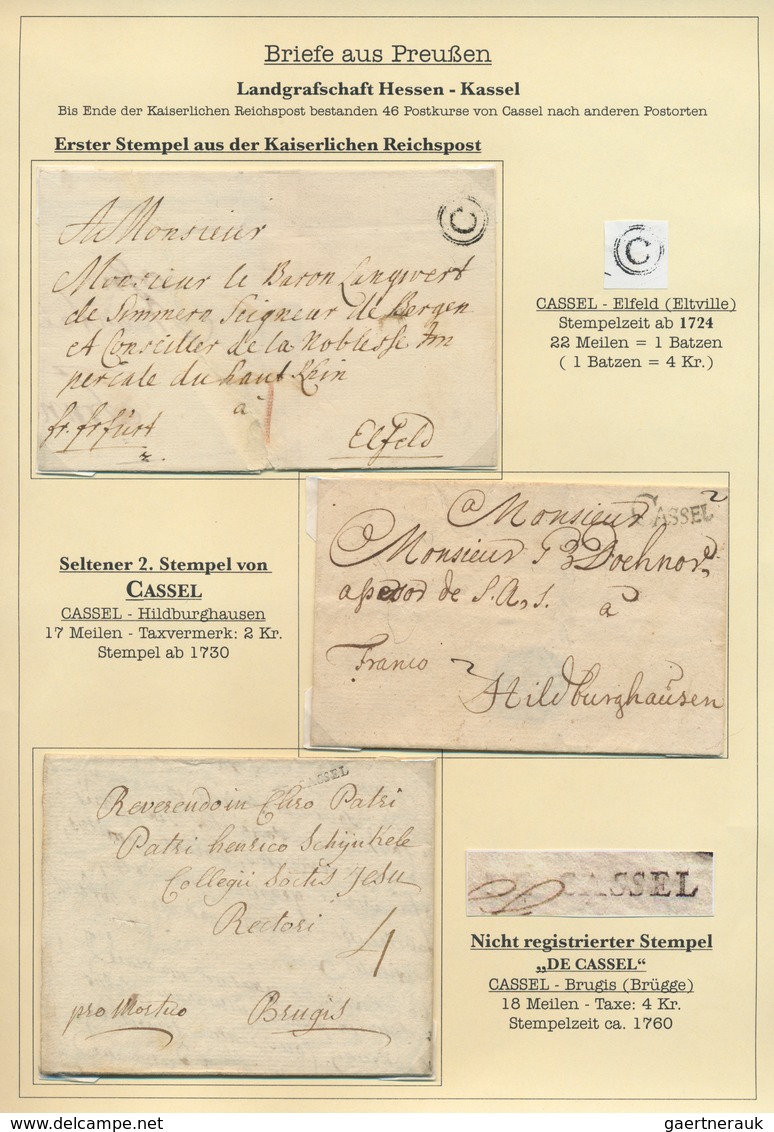 Briefe aus Preußen
Landgrafschaft Hessen - Kassel
Bis Ende der Kaiserlichen Reichspost bestanden 46 Postkurse von Cassel nach anderen Postorten
Erster Stempel aus der Kaiserlichen Reichspost
C
A Monsieur
Monsieur le Baron Langwert
de Simmern Seigneur de Bergen
et Conseiller de la Noblesse Im
periale du haut Rhin
à
fr. frfurt
Elfeld
C
CASSEL - Elfeld (Eltville)
Stempelzeit ab 1724
22 Meilen = 1 Batzen
( 1 Batzen = 4 Kr.)
CASSEL
a Monsieur
Monsieur
de S. A. S. a
Franco
Hildburghausen
Seltener 2. Stempel von
CASSEL
CASSEL - Hildburghausen
17 Meilen - Taxvermerk: 2 Kr.
Stempel ab 1730
CASSEL
Reverendo in Chro Patri
Patri henrico Schijnkele
Collegii Soctis Jesu
Rectori
4
pro Mortuo Brugis
CASSEL
Nicht registrierter Stempel
„DE CASSEL“
CASSEL - Brugis (Brügge)
18 Meilen - Taxe: 4 Kr.
Stempelzeit ca. 1760
gaertnerauk